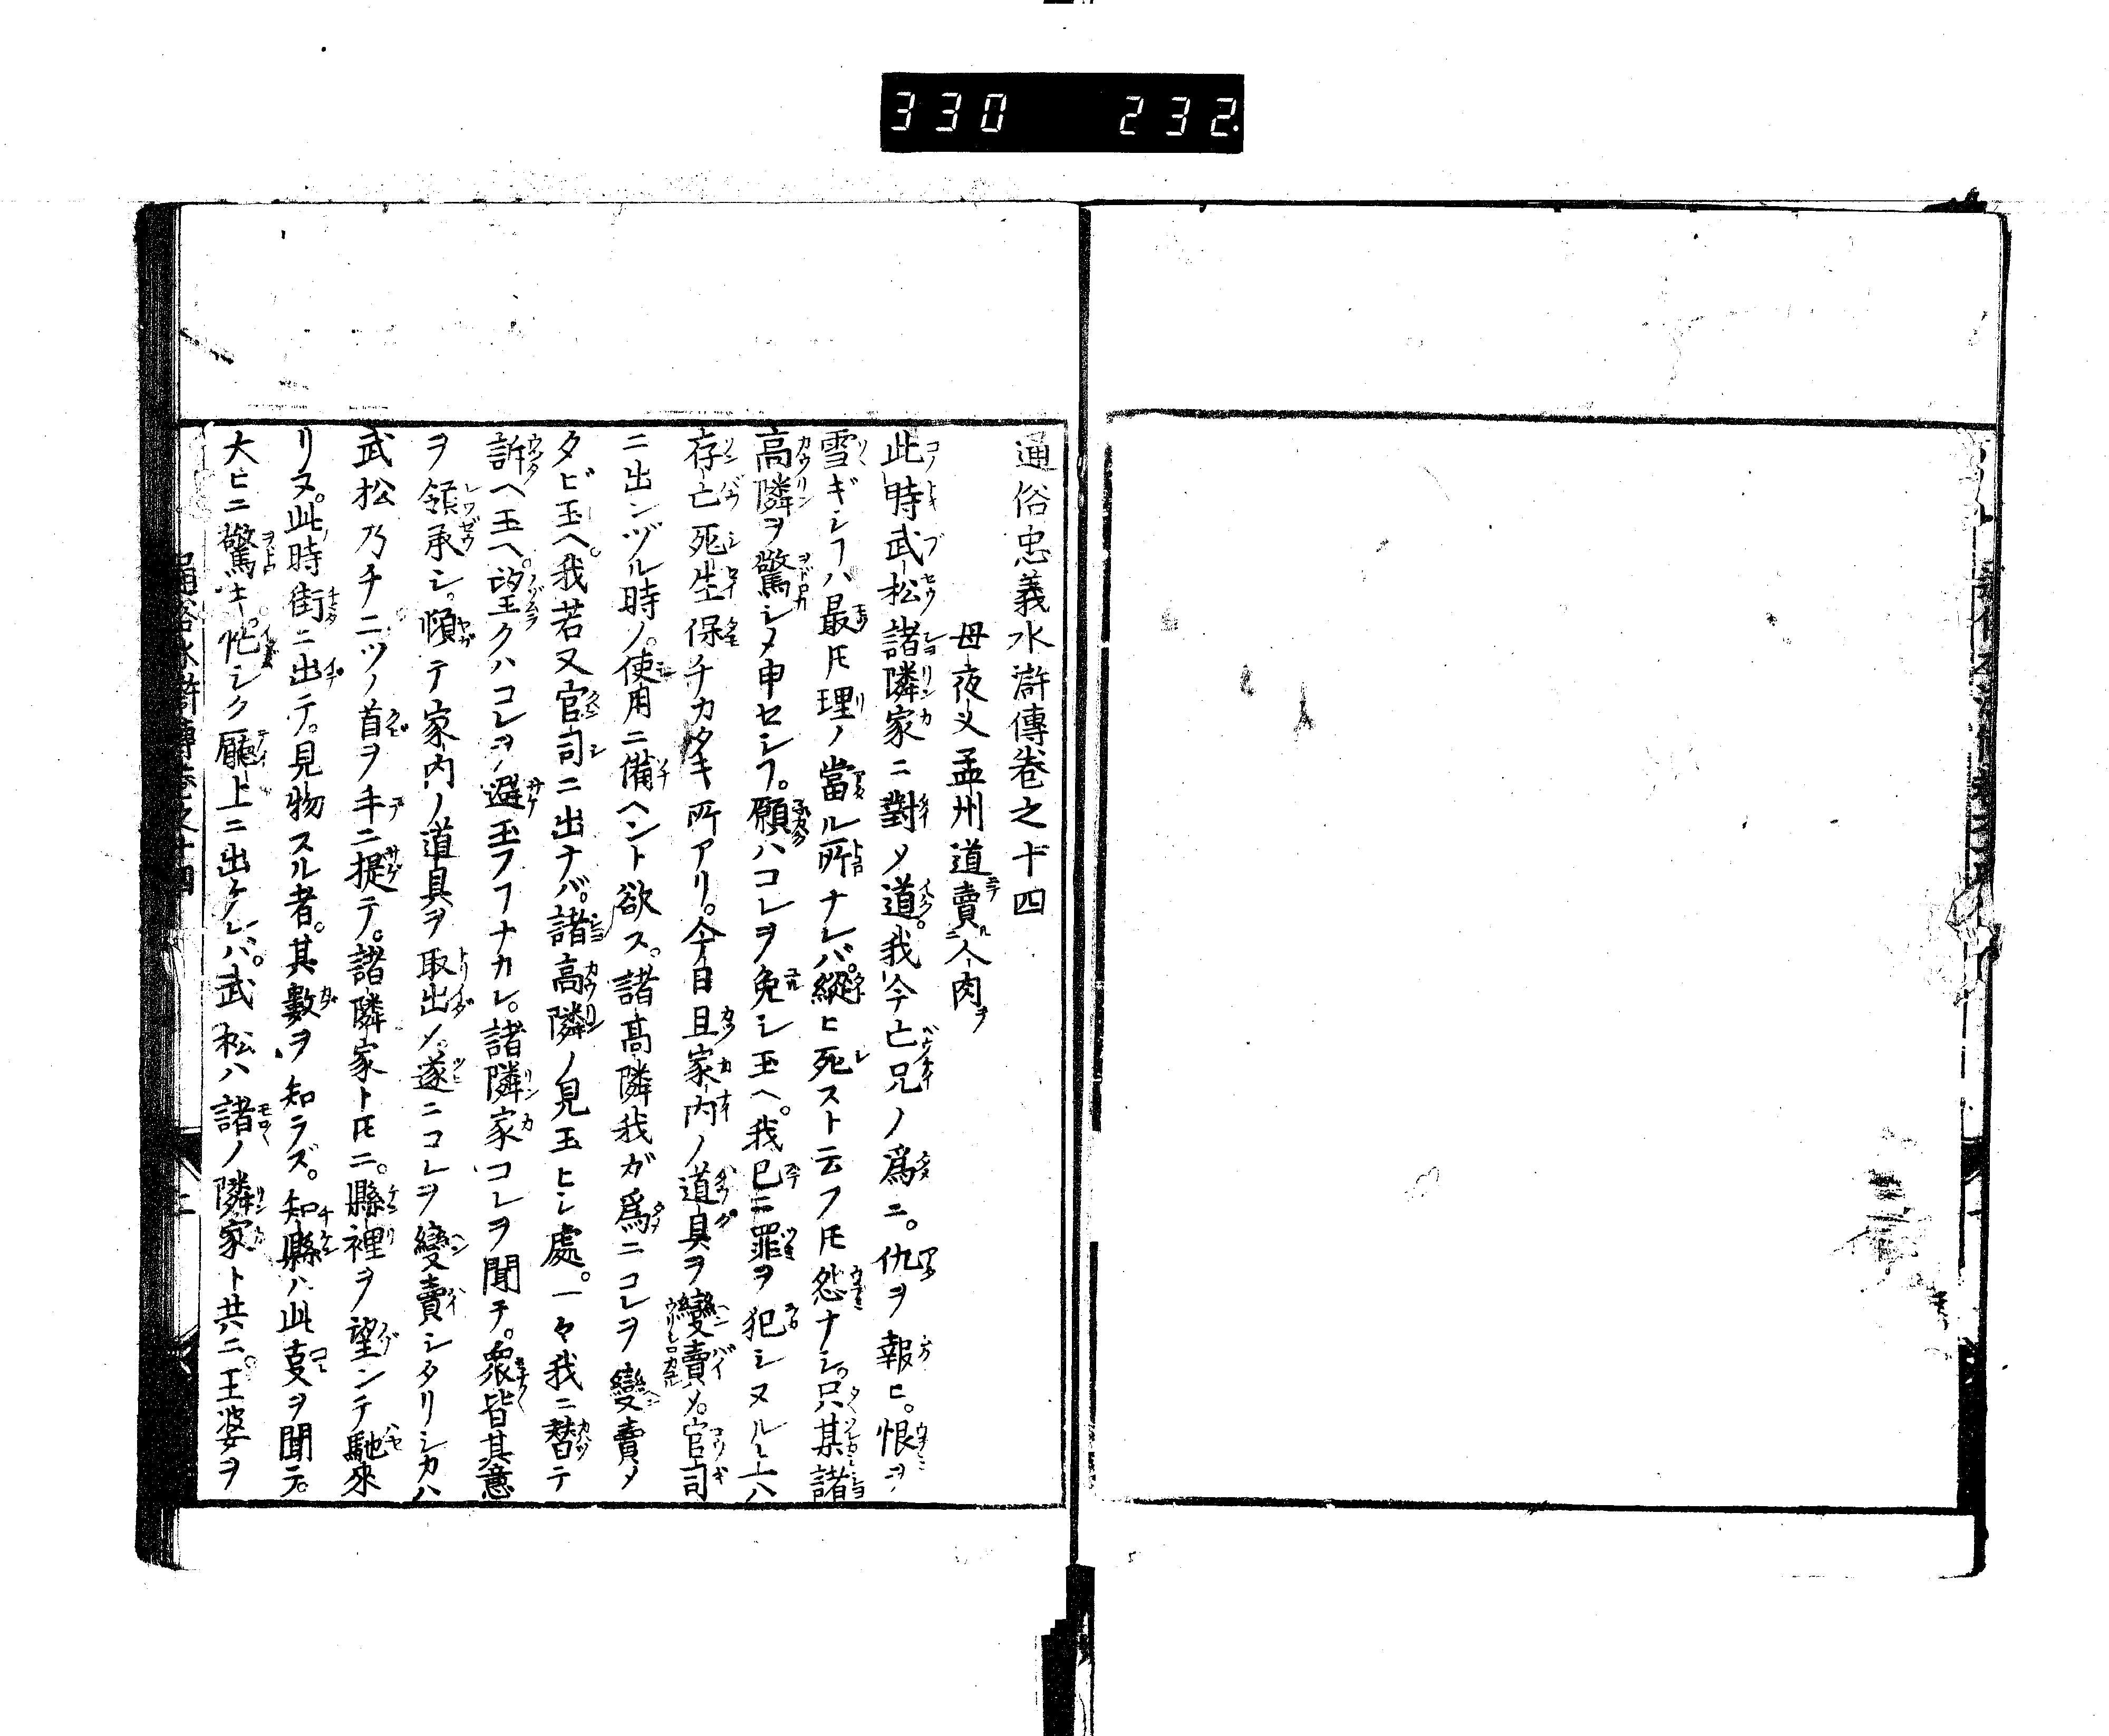 330 232
通俗忠義水滸傳卷之十四
母夜叉孟州道賣人肉
此時武松諸隣家ニ對メ道。我今亡兄ノ爲ニ。仇ヲ報ヒ。恨ヲ
雪ギシヿハ最モ理ノ當ル所ナレバ。縱ヒ死スト云フ𪜈怨ナシ。只某諸
高隣ヲ驚シメ申セシヿ。願ハコレヲ免シ玉ヘ。我已ニ罪ヲ犯シヌル上ハ
存亡死生保チカタキ所アリ。今日且家内ノ道具ヲ變賣メ。官司
ニ出ンヅル時ノ。使用ニ備ヘント欲ス。諸高隣我ガ爲ニコレヲ變賣メ
タビ玉ヘ。我若又官司ニ出ナバ。諸高隣ノ見玉ヒシ處。一々我ニ替テ
訴ヘ玉ヘ。望クハコレヲ避玉フヿナカレ。諸隣家コレヲ聞テ。衆皆其意
ヲ領承シ。頓テ家内ノ道具ヲ取出メ。遂ニコレヲ變賣シタリシカハ
武松乃チ二ツノ首ヲ手ニ提テ。諸隣家ト𪜈ニ。縣裡ヲ望ンテ馳來
リヌ。此時街ニ出テ。見物スル者。其數ヲ知ラズ。知縣ハ此㕝ヲ聞テ。
大ヒニ驚キ。忙シク廳上ニ出ケレバ。武松ハ諸ノ隣家ト共ニ。王婆ヲ
通俗水滸傳卷之十四